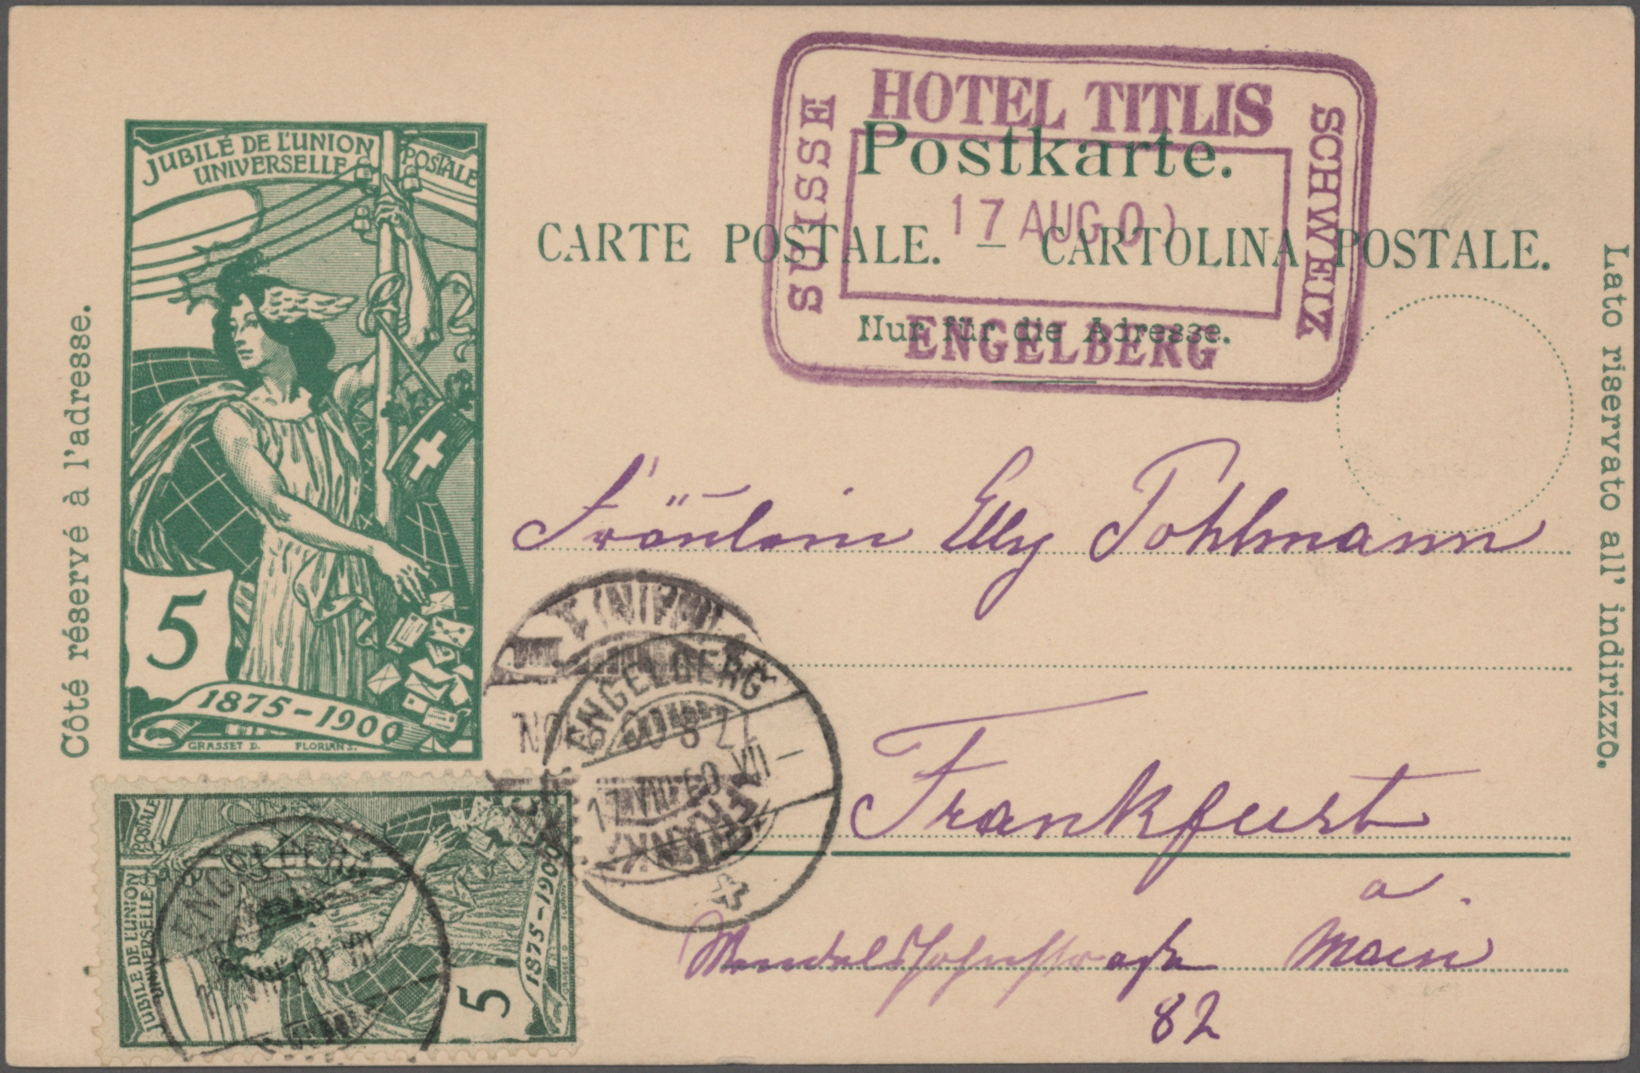 HOTEL TITLIS
SUISSE
SCHWEIZ
17 AUG 0
ENGELBERG
Postkarte.
CARTE POSTALE. — CARTOLINA POSTALE.
Nur für die Adresse.
Côté réservé à l'adresse.
Lato riservato all' indirizzo.
JUBILÉ DE L'UNION POSTALE
UNIVERSELLE
5
1875-1900
GRASSET D. FLORIAN S.
Fräulein Elly Pohlmann
Frankfurt
a. Main
Mendelssohnstraße
82
ENGELBERG
17 VIII 00 VII
FRANK
JUBILÉ DE L'UNION POSTALE
UNIVERSELLE
5
1875-1900
ENGELBERG
17 VIII 00 VII